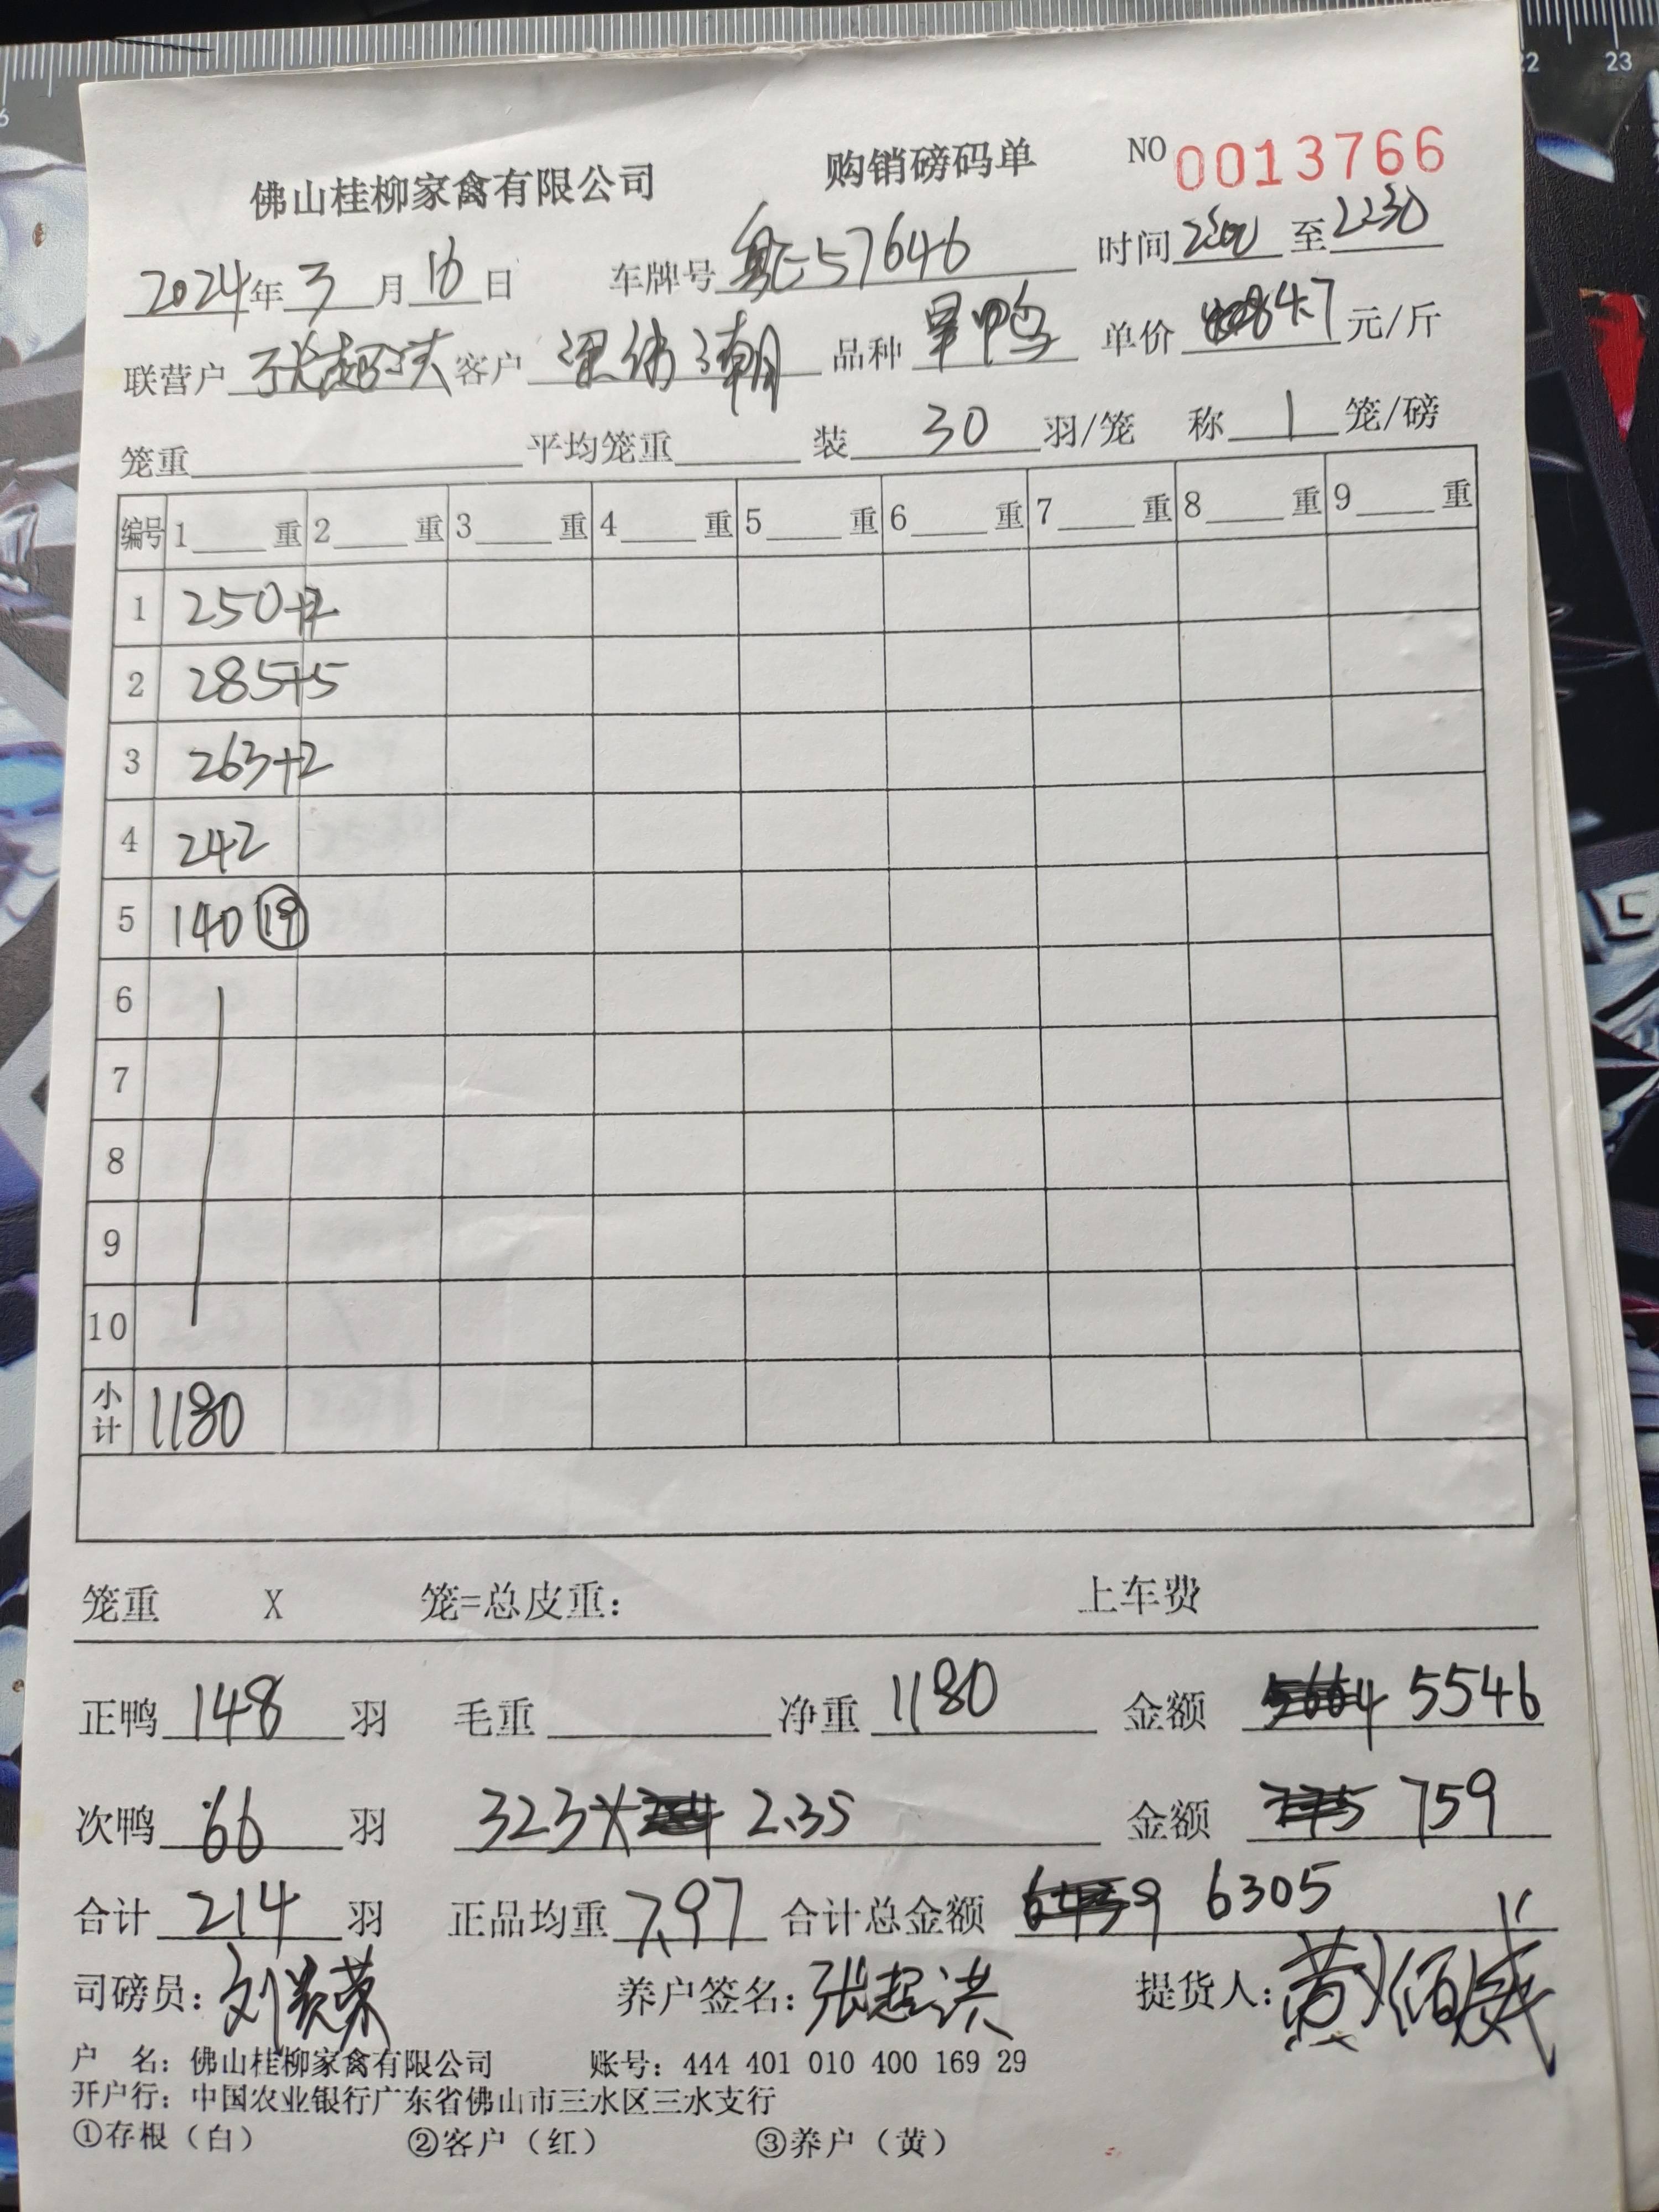 佛山桂柳家禽有限公司 购销磅码单 NO 0013766
2024年3月16日 车牌号 粤E57646 时间 至 2230
联营户 张超洪 客户 梁伟潮 品种 旱鸭 单价 4.7 元/斤
笼重 平均笼重 装 30 羽/笼 称 1 笼/磅
编号 1 重 2 重 3 重 4 重 5 重 6 重 7 重 8 重 9 重
1 250+2
2 285+5
3 263+2
4 242
5 140 19
6
7
8
9
10
小计 1180
笼重 X 笼=总皮重: 上车费
正鸭 148 羽 毛重 净重 1180 金额 5664 5546
次鸭 66 羽 323X 2.35 金额 775 759
合计 214 羽 正品均重 7.97 合计总金额 6439 6305
司磅员: 刘贵荣 养户签名: 张超洪 提货人: 黄佰威
户 名: 佛山桂柳家禽有限公司 账号: 444 401 010 400 169 29
开户行: 中国农业银行广东省佛山市三水区三水支行
①存根（白） ②客户（红） ③养户（黄）
22 23